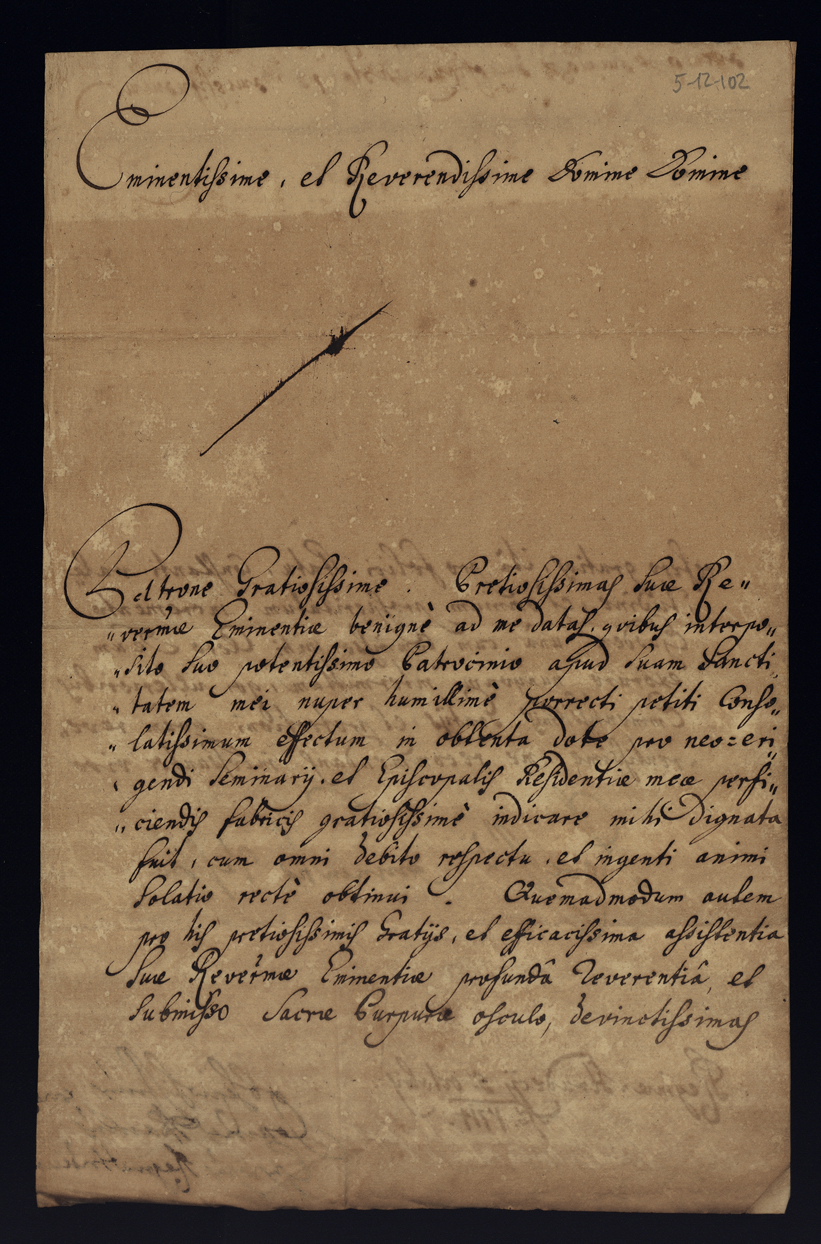 5-12-102
Eminentissime, et Reverendissime Domine Domine
Patrone Gratiosissime. Pretiosissimas Suæ Re„
„verm̃æ Eminentiæ benignè ad me datas, qvibus interpo„
„sito Suo potentissimo Patrocinio apud Suam Sancti„
„tatem mei nuper humillimè porrecti petiti Conso„
„latissimum effectum in obtenta dote pro neo=eri„
„gendi Seminarij, et Episcopalis Residentiæ meæ perfi„
„ciendis fabricis gratiosissimè indicare mihi Dignata
fuit, cum omni debito respectu, et ingenti animi
Solatio rectè obtinui. Quemadmodum autem
pro his pretiosissimis Gratijs, et efficacissima assistentia
Suæ Reverm̃æ Eminentiæ profundâ Reverentiâ, et
Submisso Sacræ Purpuræ osculo, devinctissimas